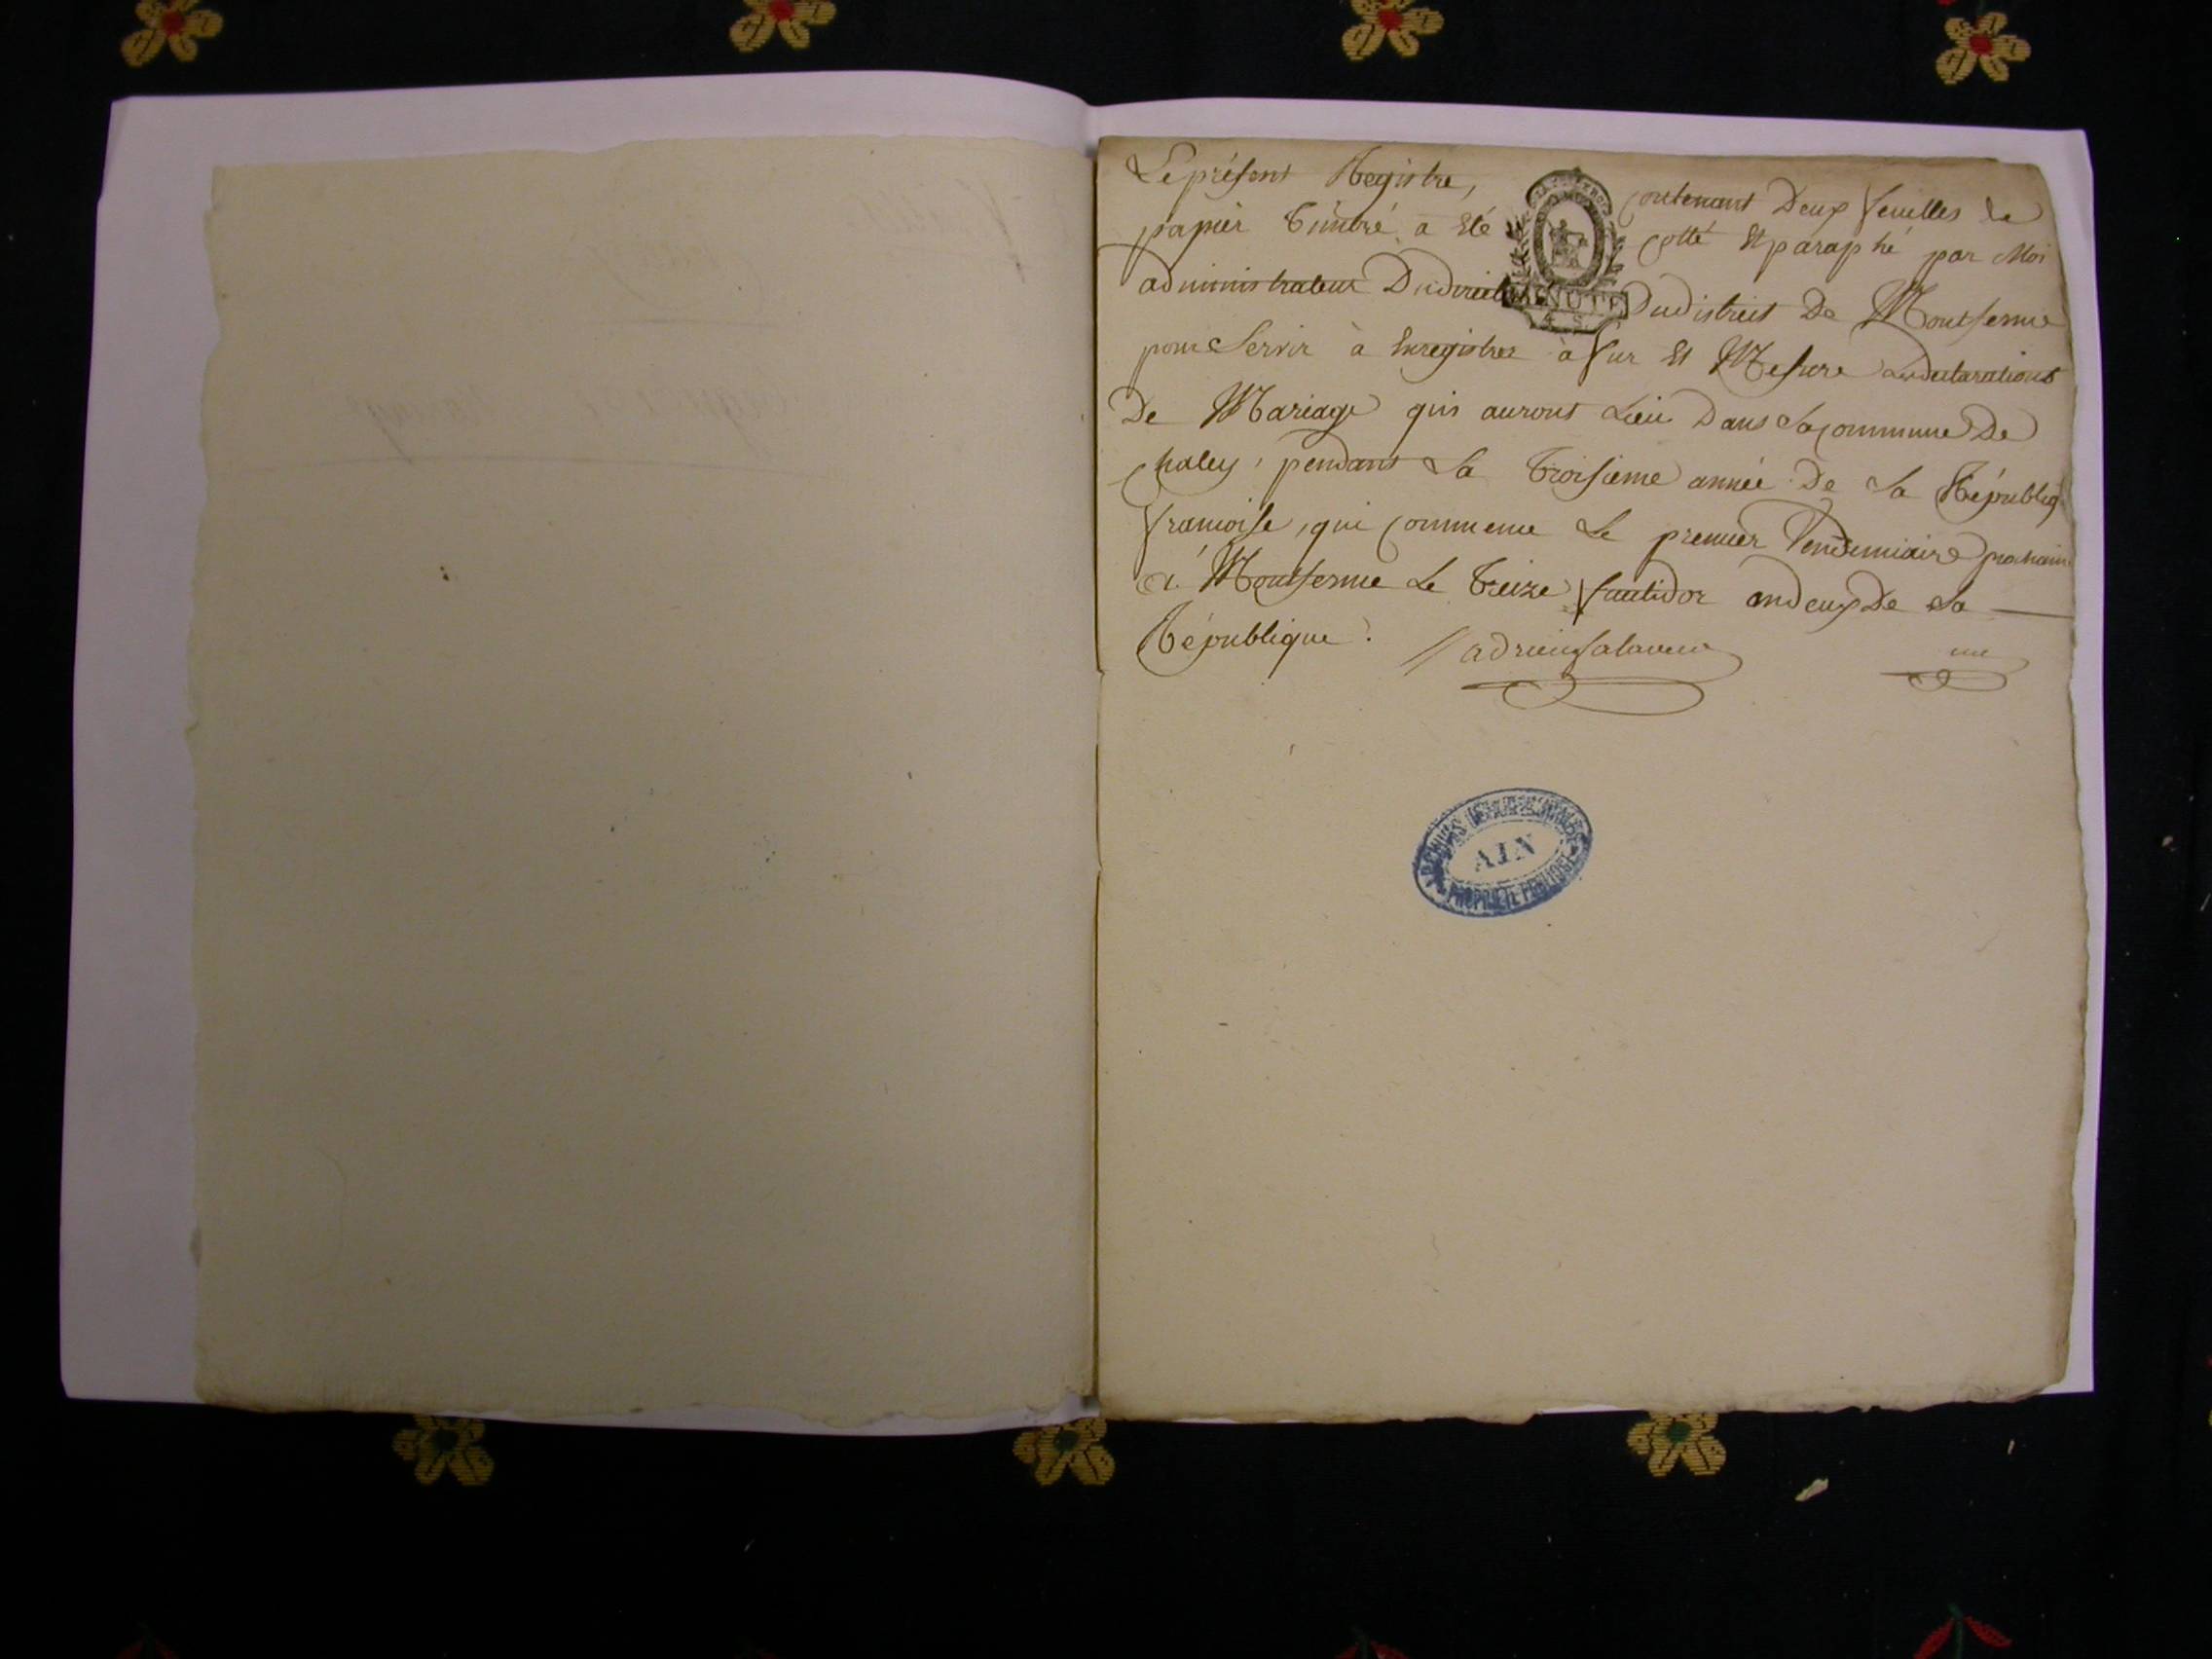 Le présent Registre, contenant Deux feuilles de
papier timbré, a Eté cotté Et paraphé par Moi
administrateur Du directoire Du district De Montferme
pour Servir à Enregistrer à fur Et Mesure les declarations
De Mariage qui auront Lieu Dans La commune De
chaley, pendant La troisieme année De La Républiq
francoise, qui commence Le premier Vendemiaire prochain
a Montferme Le treize fructidor an deux De La
République.
MINUTE
4 S
ARCHIVES DÉPARTEMENTALES
AIN
PROPRIÉTÉ PUBLIQUE